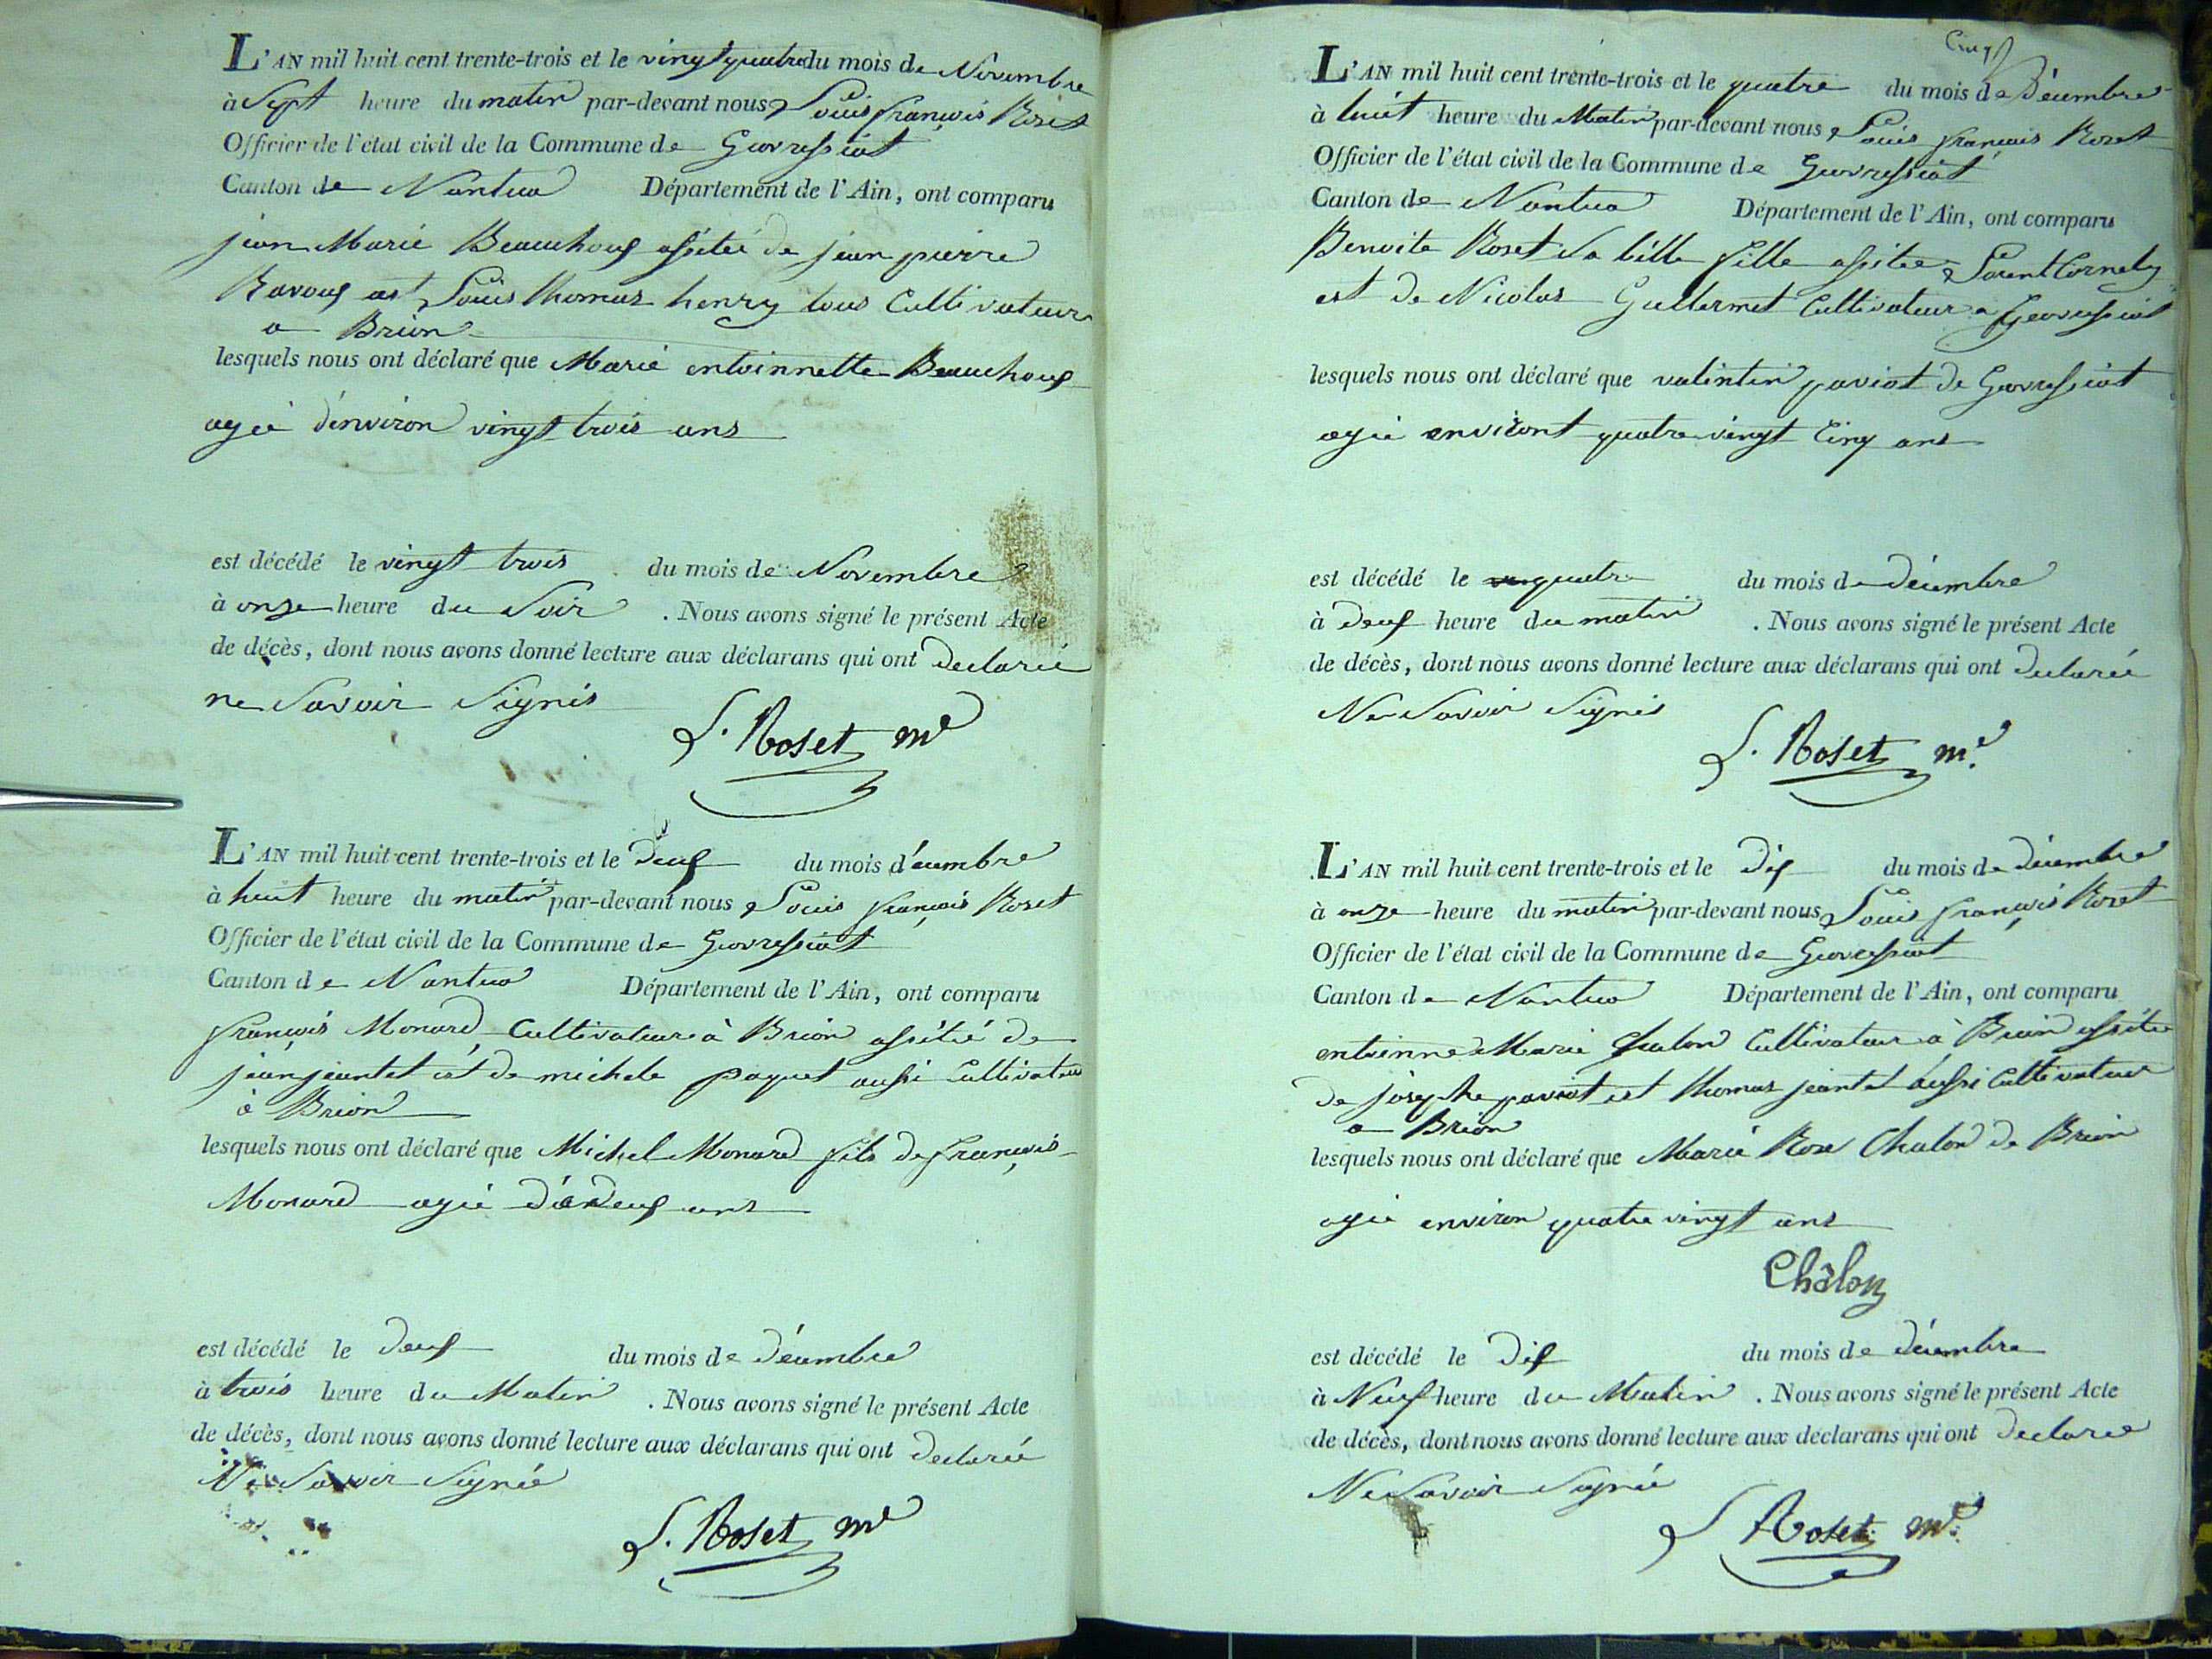 L'AN mil huit cent trente-trois et le vingt quatre du mois de Novembre
à Sept heure du matin par-devant nous Louis françois Roset
Officier de l'état civil de la Commune de Geovressiat
Canton de Nantua Département de l'Ain, ont comparu
jean Marie Beauchoux assitée de jean pierre
Ravoux est Louis thomas henry tous Cultivateur
a Brion
lesquels nous ont déclaré que Marie entoinnette Beauchoux
agée d'environ vingt trois ans
est décédé le vingt trois du mois de Novembre
à onze heure du Soir . Nous avons signé le présent Acte
de décès, dont nous avons donné lecture aux déclarans qui ont declarié
ne Savoir Signés
L. Roset me
L'AN mil huit cent trente-trois et le Deux du mois d'écembre
à huit heure du matin par-devant nous Louis françois Roset
Officier de l'état civil de la Commune de Geovressiat
Canton de Nantua Département de l'Ain, ont comparu
françois Monard Cultivateur à Brion assitié de
jean jeantet est de michele paquet aussi Cultivateur
à Brion
lesquels nous ont déclaré que Michel Monard fils de françois
Monard agée Deux ans
est décédé le Deux du mois de décembre
à trois heure du Matin . Nous avons signé le présent Acte
de décès, dont nous avons donné lecture aux déclarans qui ont declarée
Ne Savoir Signée
L. Roset me
Cinq
L'AN mil huit cent trente-trois et le quatre du mois de Décembre
à huit heure du Matin par-devant nous Louis françois Roset
Officier de l'état civil de la Commune de Geovressiat
Canton de Nantua Département de l'Ain, ont comparu
Benoite Roset Sa bille fille assitée Laurent Cornely
est de Nicolas Gullermet Cultivateur a Geovressiat
lesquels nous ont déclaré que valintin paviot de Geovressiat
agée environt quatre vingt Cinq ans
est décédé le quatre du mois de décembre
à Deux heure du matin . Nous avons signé le présent Acte
de décès, dont nous avons donné lecture aux déclarans qui ont declarée
Ne Savoir Signés
L. Roset me.
L'AN mil huit cent trente-trois et le Dix du mois de décembre
à onze heure du matin par-devant nous Louis françois Roset
Officier de l'état civil de la Commune de Geovressiat
Canton de Nantua Département de l'Ain, ont comparu
entoinne Marie Chalon Cultivateur à Brion assitée
de josephe paviot est thomas jeantet aussi Cultivateur
a Brion
lesquels nous ont déclaré que Marie Rose Chalon de Brion
agée environ quatre vingt ans
Châlon
est décédé le Dix du mois de décembre
à Neuf heure du Matin . Nous avons signé le présent Acte
de décès, dont nous avons donné lecture aux déclarans qui ont declaré
Ne Savoir Signée
L Roset me.